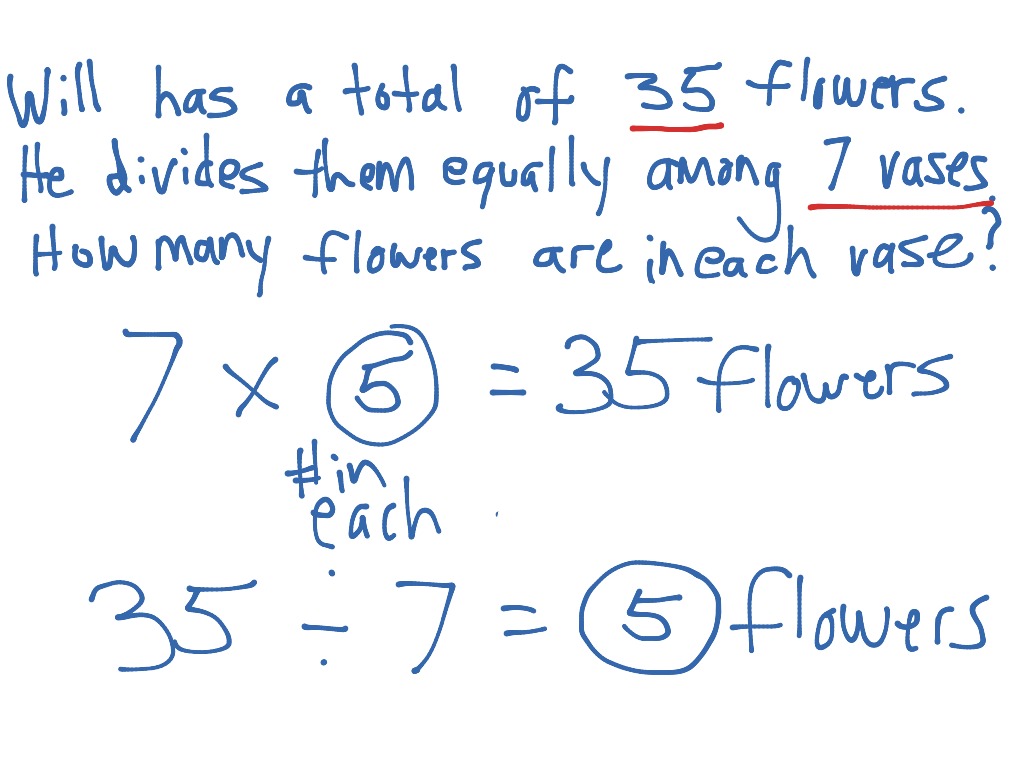 Will has a total of 35 flowers.
He divides them equally among 7 vases.
How many flowers are in each vase?
7 × 5 = 35 flowers
# in
each
35 ÷ 7 = 5 flowers